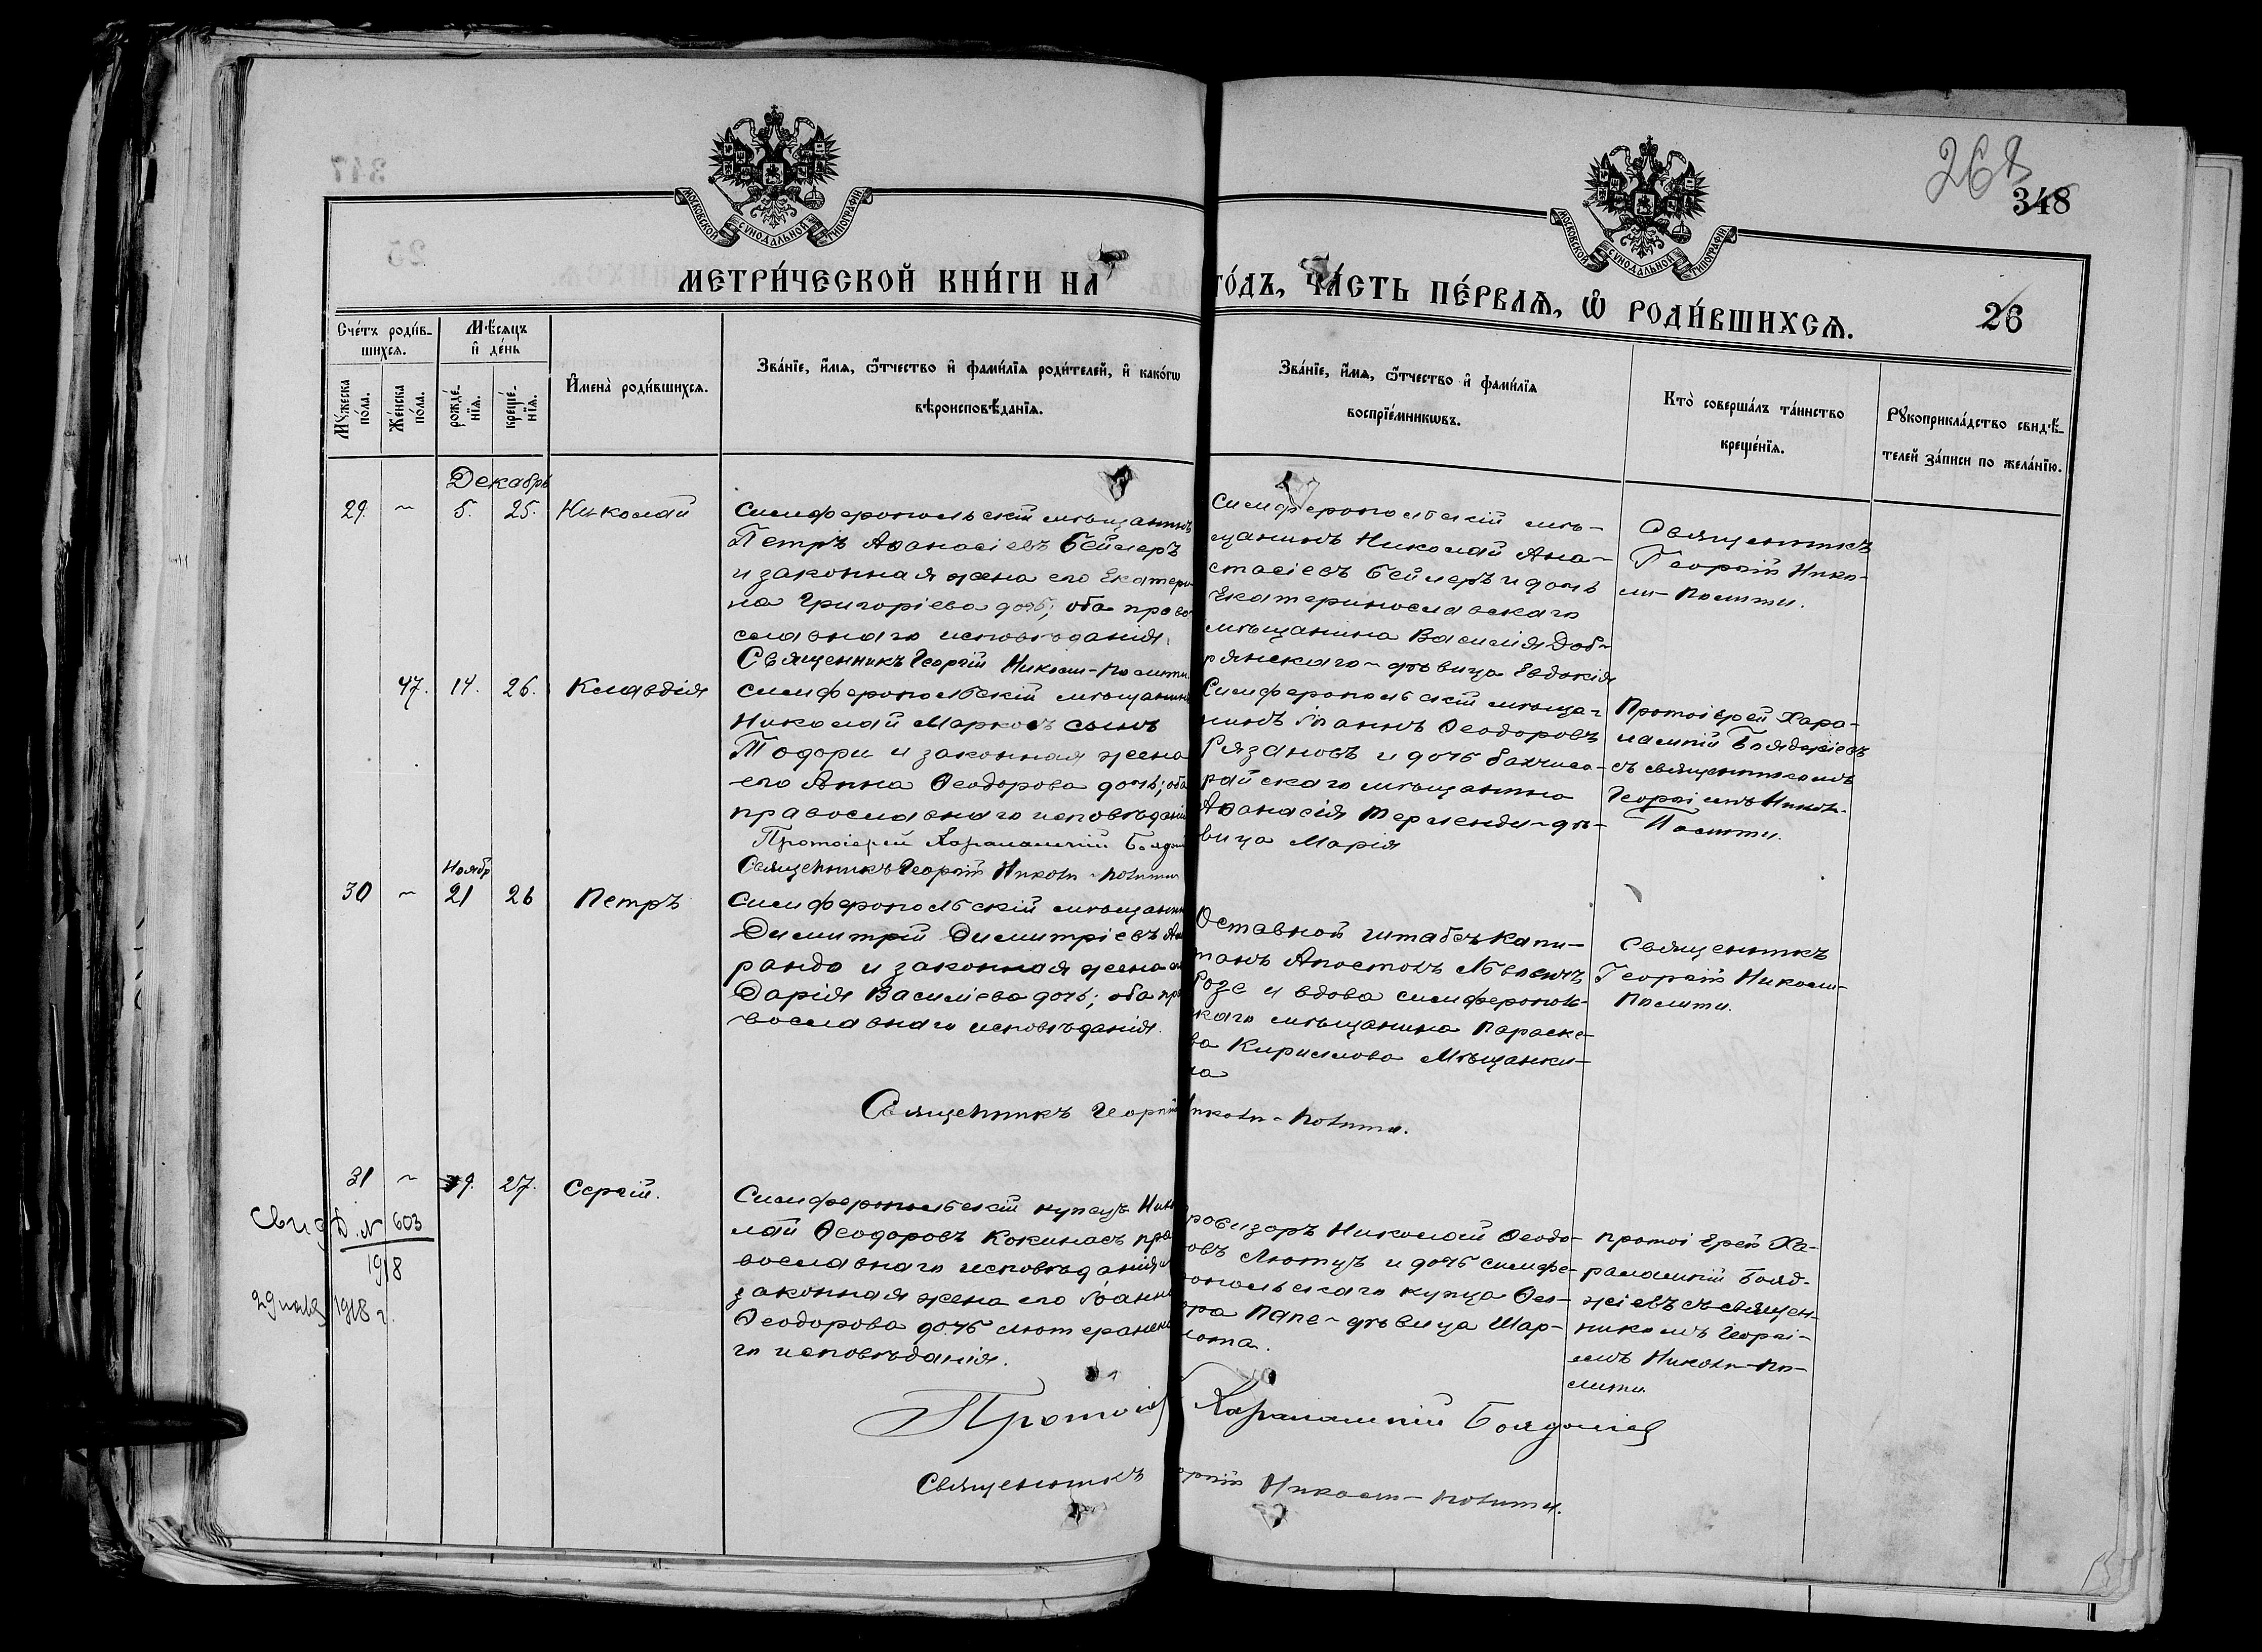 347
25
268
348
26
МОСКОВСКОЙ СѴНОДАЛЬНОЙ ТИПОГРАФІИ
МОСКОВСКОЙ СѴНОДАЛЬНОЙ ТИПОГРАФІИ
МЕТРИ́ЧЕСКОЙ КНИ́ГИ НА
ГО́ДЪ, ЧА́СТЬ ПЕ́РВАЯ, Ѽ РОДИ́ВШИХСЯ.
Сче́тъ роди́в-
шихся.
Мѣ́сяцъ
и҆ де́нь
Мꙋ́жеска
по́ла.
Же́нска
по́ла.
рожде́-
нїя.
креще́-
нїя.
И҆мена̀ роди́вшихся.
Зва́нїе, и҆́мя, ѻ҆́тчество и҆ фами́лїя роди́телей, и҆ како́гѡ
вѣроисповѣ́данїя.
Зва́нїе, и҆́мя, ѻ҆́тчество и҆ фами́лїя
воспрїе́мникѡвъ.
Кто̀ соверша́лъ та́инство
креще́нїя.
Рꙋкоприкла́дство свидѣ́-
телей за́писи по жела́нїю.
Декабрь
29. ~ 5. 25. Николай
Симферопольскій мѣщанинъ
Петръ Аѳанасіевъ Бейлеръ
и законная жена его Екатери-
на Григоріева дочь; оба право
славнаго исповѣданія.
Священникъ Георгій Николи-Полити.
Симферопольскій мѣ-
щанинъ Николай Ана-
стасіевъ Бейлеръ и дочь
Екатеринославскаго
мѣщанина Василія Доб-
рянскаго - дѣвица Евдокія
Священникъ
Георгій Нико-
ли-Полити.
47. 14. 26. Клавдія
Симферопольскій мѣщанинъ
Николай Марковъ сынъ
Тодори и законная жена
его Анна Ѳеодорова дочь; оба
православнаго исповѣданія
Протоіерей Харалампій
Священникъ Георгій Николи-Полити
Симферопольскій мѣща-
нинъ Іоаннъ Ѳеодоровъ
Рязановъ и дочь бахчиса-
райскаго мѣщанина
Аѳанасія Терленди-дѣ-
вица Марія
Протоіерей Хара-
лампій Бояджіевъ
съ священникомъ
Георгіемъ Николи-
Полити.
Ноябр
30 ~ 21 26 Петръ
Симферопольскій мѣщанин
Димитрій Димитріевъ
рандо и законная жена
Дарія Василіева дочь; оба пра
вославнаго исповѣданія.
Оставной штабсъ капи-
танъ Апостолъ Львовичъ
Розе и вдова симферополь-
скаго мѣщанина Параске-
ва Кириллова Мѣщанки-
на
Священникъ
Георгій Николи-
Полити.
Священникъ Георгій Николи-Полити.
31 ~ 9. 27. Сергій.
Свид. N 603
1918
1918 г.
Симферопольскій купецъ Нико
лай Ѳеодоровъ Кокинасъ пра
вославнаго исповѣданія и
законная жена его Іоанна
Ѳеодорова дочь лютеранска
го исповѣданія.
Провизоръ Николай Ѳеодо-
ровъ Лютцъ и дочь симфе-
ропольскаго купца Ѳео-
дора Папе-дѣвица Шар-
лота.
Протоіерей Ха-
ралампій Бояд-
жіевъ съ священ-
никомъ Георгі-
емъ Николи-По-
лити.
Протоіе Харалампій Бояджіев
Священникъ Георгій Николи-Политі.